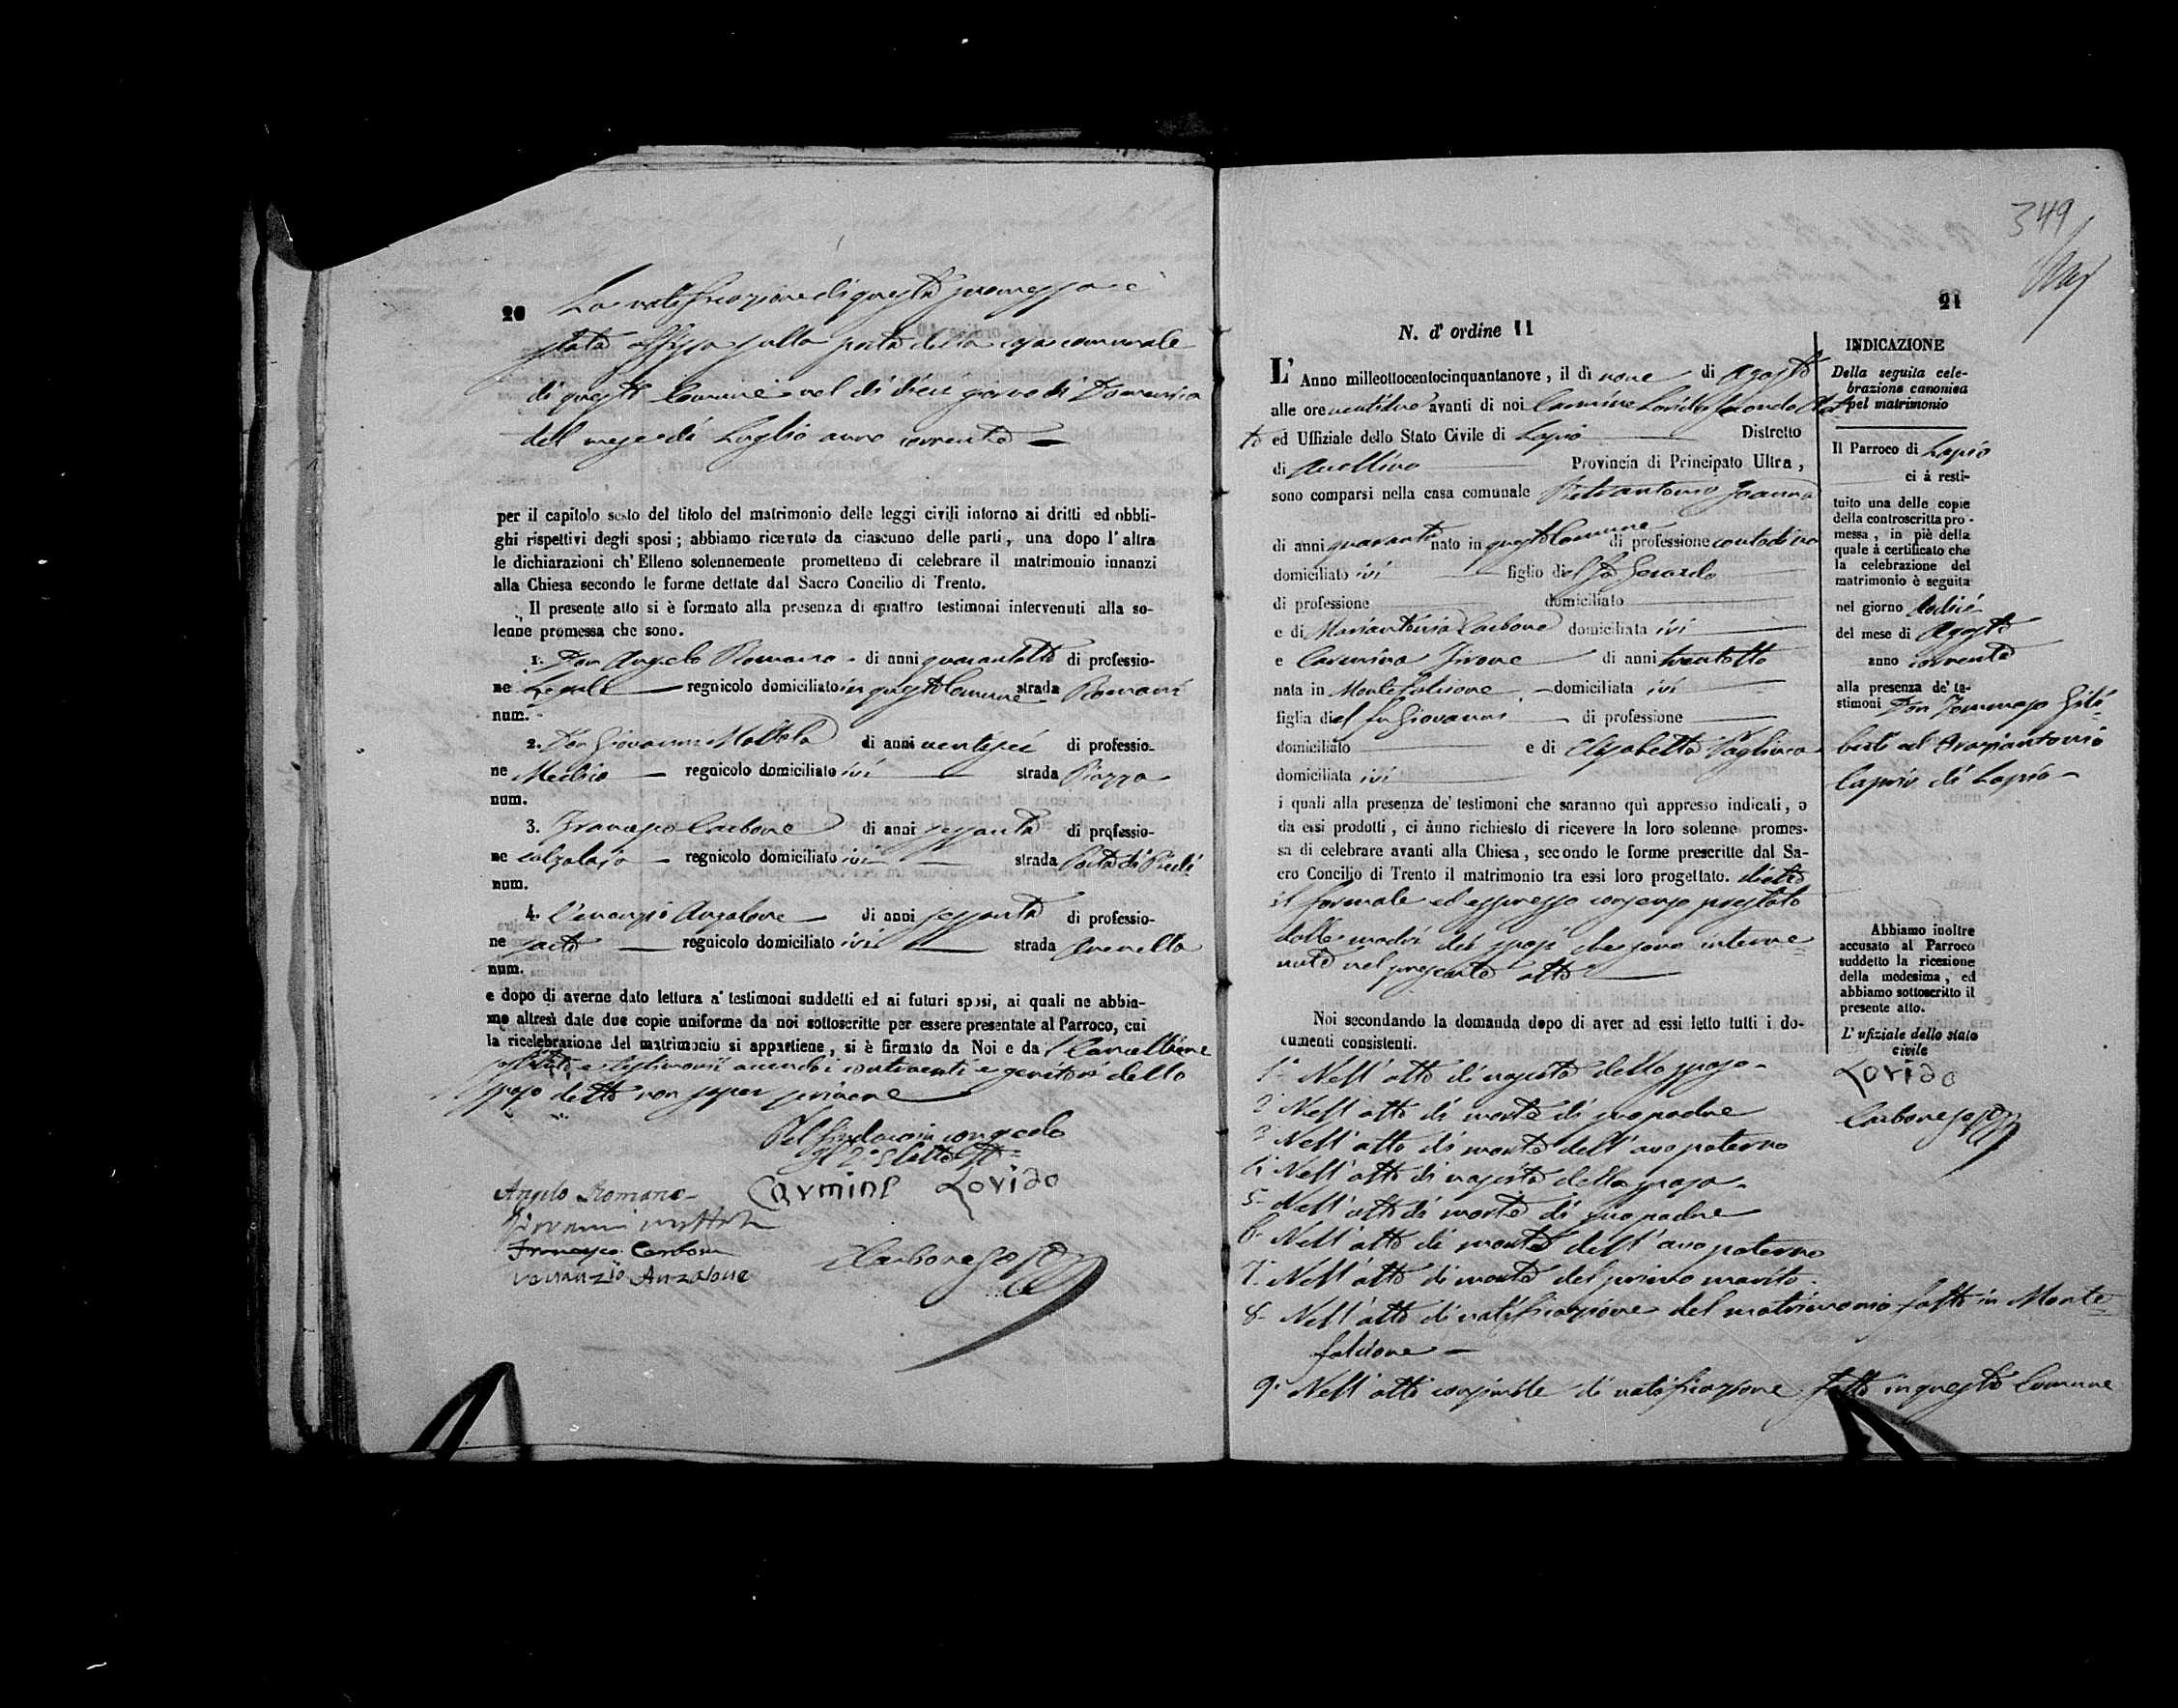 20
La notificazione di questa promessa è
stata affissa sulla porta della casa comunale
di questo Comune nel dì dieci giorno di Domenica
del mese di Luglio anno corrente
per il capitolo sesto del titolo del matrimonio delle leggi civili intorno ai dritti ed obbli-
ghi rispettivi degli sposi ; abbiamo ricevuto da ciascuno delle parti, una dopo l'altra
le dichiarazioni ch' Elleno solennemente prometteno di celebrare il matrimonio innanzi
alla Chiesa secondo le forme dettate dal Sacro Concilio di Trento.
Il presente atto si è formato alla presenza di quattro testimoni intervenuti alla so-
lenne promessa che sono.
1. Don Angelo Romano di anni quarantotto di professio-
ne Legale regnicolo domiciliato in questo Comune strada Romani
num.
2. Don Giovanni Mottola di anni ventisei di professio-
ne Medico regnicolo domiciliato ivi strada Piazza
num.
3. Francesco Carbone di anni sessanta di professio-
ne calzolajo regnicolo domiciliato ivi strada Porta di Piedi
num.
4. Venanzio Anzalone di anni sessanta di professio-
ne sarto regnicolo domiciliato ivi strada
num.
e dopo di averne dato lettura a' testimoni suddetti ed ai futuri sposi, ai quali ne abbia-
mo altresì date due copie uniforme da noi sottoscritte per essere presentate al Parroco, cui
la ricelebrazione del matrimonio si appartiene, si è firmato da Noi e da l Cancelliere
sostituto e testimonii avendo i contraenti e genitori dello
sposo detto non saper scrivere
Pel Sindaco in congedo
Il 2° Eletto
Carmine Lovido
Angelo Romano
Giovanni Mottola
Francesco Carbone
Venanzio Anzalone
Carbone Sost
349
21
N. d' ordine 11
L' Anno milleottocentocinquantanove, il dì nove di Agosto
alle ore ventidue avanti di noi Carmine Lovido secondo Elet
to ed Uffiziale dello Stato Civile di Lapio Distretto
di Avellino Provincia di Principato Ultra,
sono comparsi nella casa comunale Pietrantonio Joanna
di anni quaranta nato in questo Comune di professione contadino
domiciliato ivi figlio del fu Gerardo
di professione domiciliato
e di Mariantonia Carbone domiciliata ivi
e Carmina Irrone di anni trentotto
nata in Montefalcione domiciliata ivi
figlia del fu Giovanni di professione
domiciliato e di Elisabetta Pagliuca
domiciliata ivi
i quali alla presenza de' testimoni che saranno quì appresso indicati, e
da essi prodotti, ci ànno richiesto di ricevere la loro solenne promes-
sa di celebrare avanti alla Chiesa, secondo le forme prescritte dal Sa-
cro Concilio di Trento il matrimonio tra essi loro progettato. dietro
il formale ed espresso consenso prestato
dalle madri dei sposi che sono interve=
nute nel presente atto
Noi secondando la domanda dopo di aver ad essi letto tutti i do-
cumenti consistenti.
1° Nell'atto di nascita dello sposo
2° Nell'atto di morte di suo padre
3° Nell'atto di morte dell'avo paterno
4° Nell'atto di nascita della sposa
5° Nell'atto di morte di suo padre
6° Nell'atto di morte dell'avo paterno
7° Nell'atto di morte del primo marito
8° Nell'atto di notificazione del matrimonio fatto in Monte=
falcione
9° Nell'atto consimile di notificazione fatto in questo Comune
INDICAZIONE
Della seguita cele-
brazione canonica
pel matrimonio
Il Parroco di Lapio
ci à resti-
tuito una delle copie
della controscritta pro-
messa, in piè della
quale à certificato che
la celebrazione del
matrimonio è seguita
nel giorno dodici
del mese di Agosto
anno corrente
alla presenza de' te-
stimoni Don Tommaso Gili
berti ed Oraziantonio
Caprio di Lapio
Abbiamo inoltre
accusato al Parroco
suddetto la ricezione
della medesima, ed
abbiamo sottoscritto il
presente atto.
L' ufiziale dello stato
civile
Lovido
Carbone Sost